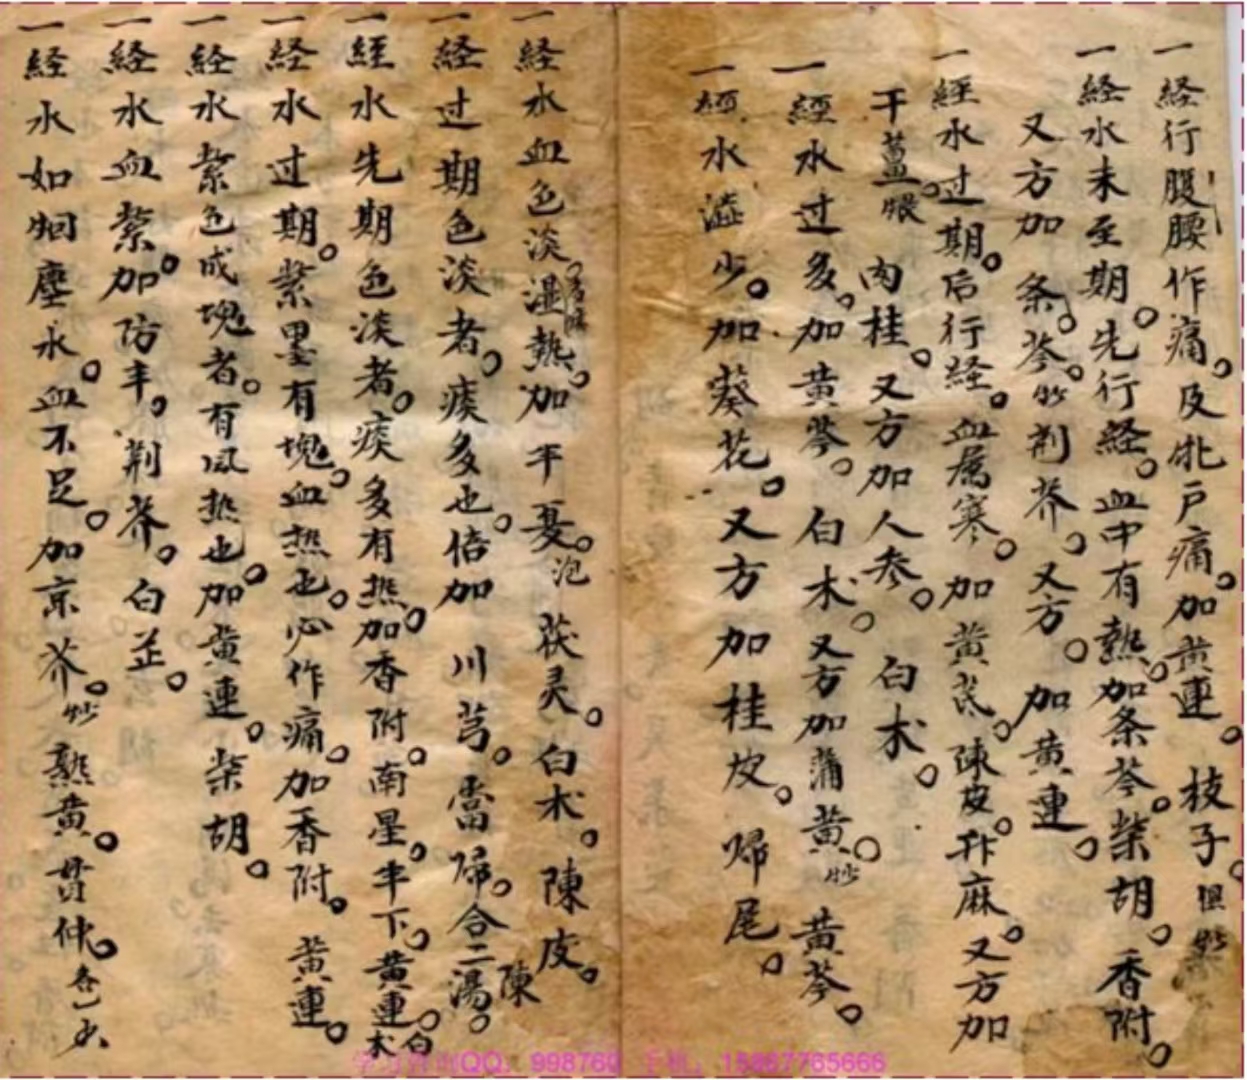 一経行腹腰作痛。及牝戸痛。加黄連。枝子。俱炒黑
一経水未至期。先行経。血中有熱。加条芩。柴胡。香附。
又方加条芩。炒荆芥。又方。加黄連。
一經水过期。后行経。血属寒。加黄芪。陳皮。升麻。又方加
干薑。煨肉桂。又方加人参。白术。
一經水过多。加黄芩。白术。又方加蒲黄。炒黄芩。
一經水澁少。加葵花。又方加桂皮。帰尾。
一経水血色淡。多痰湿熱。加半夏。泡茯灵。白术。陳皮。
一経过期色淡者。痰多也。倍加川芎。當帰。合二陳湯。
一經水先期色淡者。痰多有熱。加香附。南星。半下。黄連。白术
一経水过期。紫墨有塊。血热也。必作痛。加香附。黄連。
一経水紫色成塊者。有风热也。加黄連。柴胡。
一経水血紫。加防丰。荆芥。白芷。
一経水如烟塵水。血不足。加京芥。炒熟黄。貫仲。各一
学习咨询QQ：998760 手机：15867765666